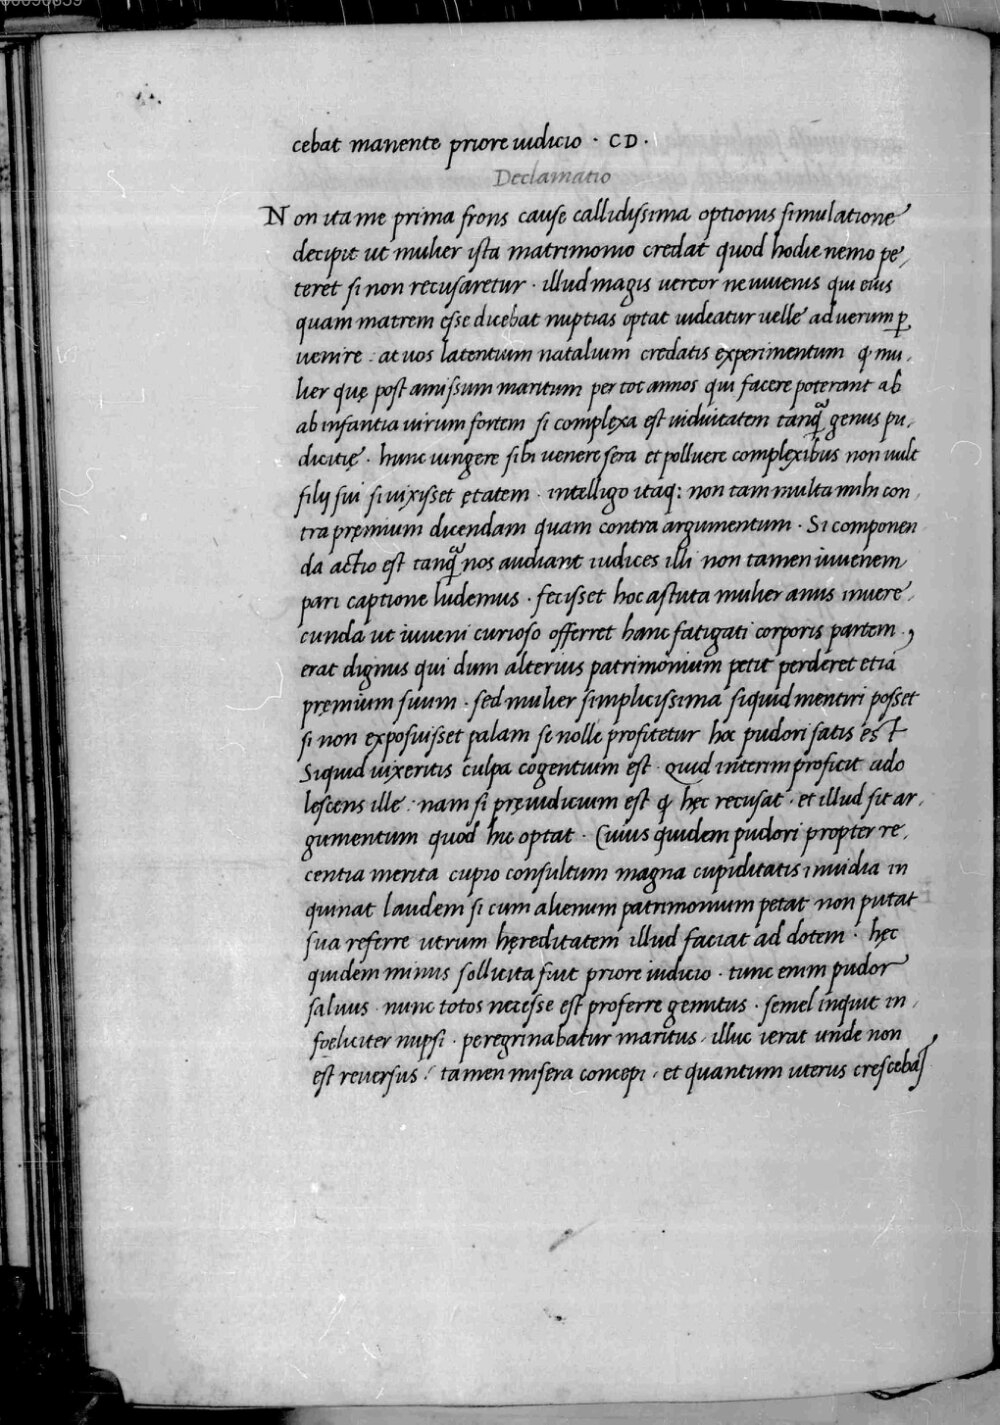 cebat manente priore iudicio · CD ·
Declamatio
Non ita me prima frons cause callidissima optionis simulatione
decipit ut mulier ista matrimonio credat quod hodie nemo pe,
teret si non recusaretur · illud magis uereor ne iuuenis qui eius
quam matrem esse dicebat nuptias optat uideatur uelle ad uerum ꝑ
uenire : at uos latentium natalium credatis experimentum ꝙ mu,
lier quę post amissum maritum per tot annos qui facere poterant ab
ab infantia uirum fortem si complexa est uiduitatem tanq̃ genus pu,
dicitię · hunc iungere sibi uenere sera et polluere complexibus non uult
filij sui si uixisset ętatem · intelligo itaq: non tam multa mihi con,
tra pręmium dicendam quam contra argumentum · Si componen
da actio est tanq̃ nos audiant iudices illi non tamen iuuenem
pari captione ludemus · fecisset hoc astuta mulier anus inuere,
cunda ut iuueni curioso offerret hanc fatigati corporis partem ,
erat dignus qui dum alterius patrimonium petit perderet etiã
pręmium suum · sed mulier simplicissima siquid mentiri posset
si non exposuisset palam se nolle profitetur hoc pudori satis est
Siquid uixeritis culpa cogentium est · Quid interim proficit ado
lescens ille : nam si pręiudicium est ꝙ hęc recusat · et illud sit ar,
gumentum quod hic optat · Cuius quidem pudori propter re,
centia merita cupio consultum magna cupiditatis inuidia in
quinat laudem si cum alienum patrimonium petat non putat
sua referre utrum hęreditatem illud faciat ad dotem · hęc
quidem minus sollicita fuit priore iudicio · tunc enim pudor
saluus · nunc totos necesse est proferre gemitus · semel inquit in,
foeliciter nupsi · peregrinabatur maritus, illuc ierat unde non
est reuersus / tamen misera concepi, et quantum uterus crescebat